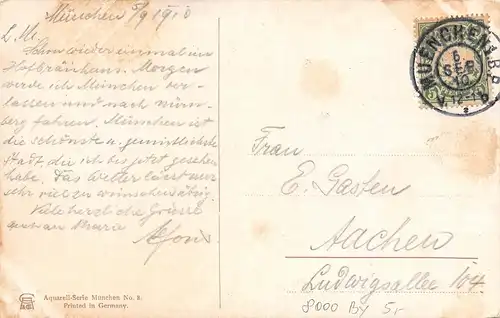 München 5/9 1910
L. M.
Schon wieder einmal im
Hofbräuhaus. Morgen
werde ich München ver-
lassen und nach Nürn-
berg fahren. München ist
die schönste u. gemütlichste
Stadt die ich bis jetzt gesehen
habe. Das Wetter lässt nur
sehr viel zu wünschen übrig.
Viele herzliche Grüsse
Maria
Alfons
MUENCHEN
6
SEP
10
Frau
E. Gasten
Aachen
Ludwigsallee 104.
Aquarell-Serie München No. 8.
Printed in Germany.
8000 By 5,-